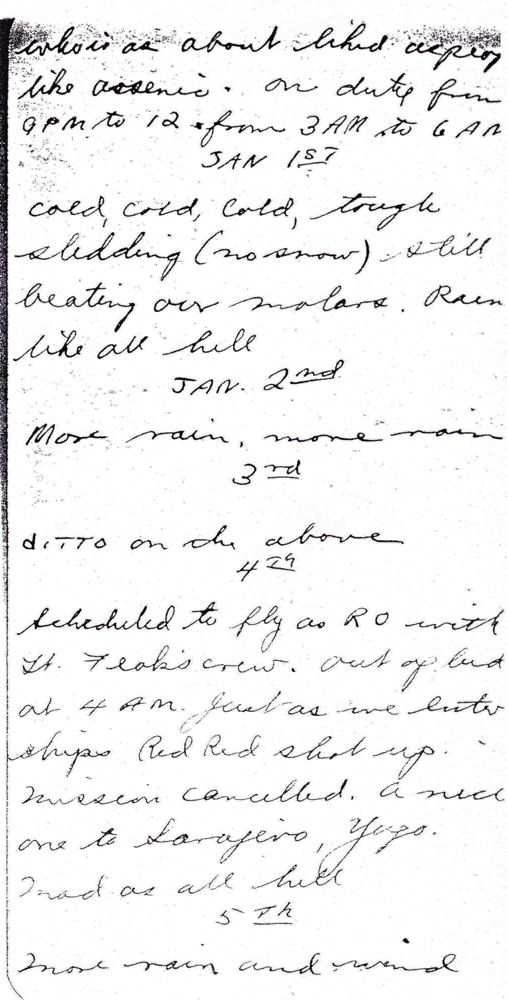 who is as about liked
like assenic. on duty from
9 PM to 12 & from 3 AM to 6 AM
JAN 1ST
cold, cold, cold, tough
sledding (no snow) still
beating our molars. Rain
like all hell
JAN. 2nd
More rain, more rain
3rd
ditto on the above
4th
Scheduled to fly as RO with
Lt. crew. Out of bed
at 4 AM. Just as we enter
ships Red Red shot up.
Mission cancelled. A nice
one to Sarajevo, Yugo.
Mad as all hell
5th
More rain and wind